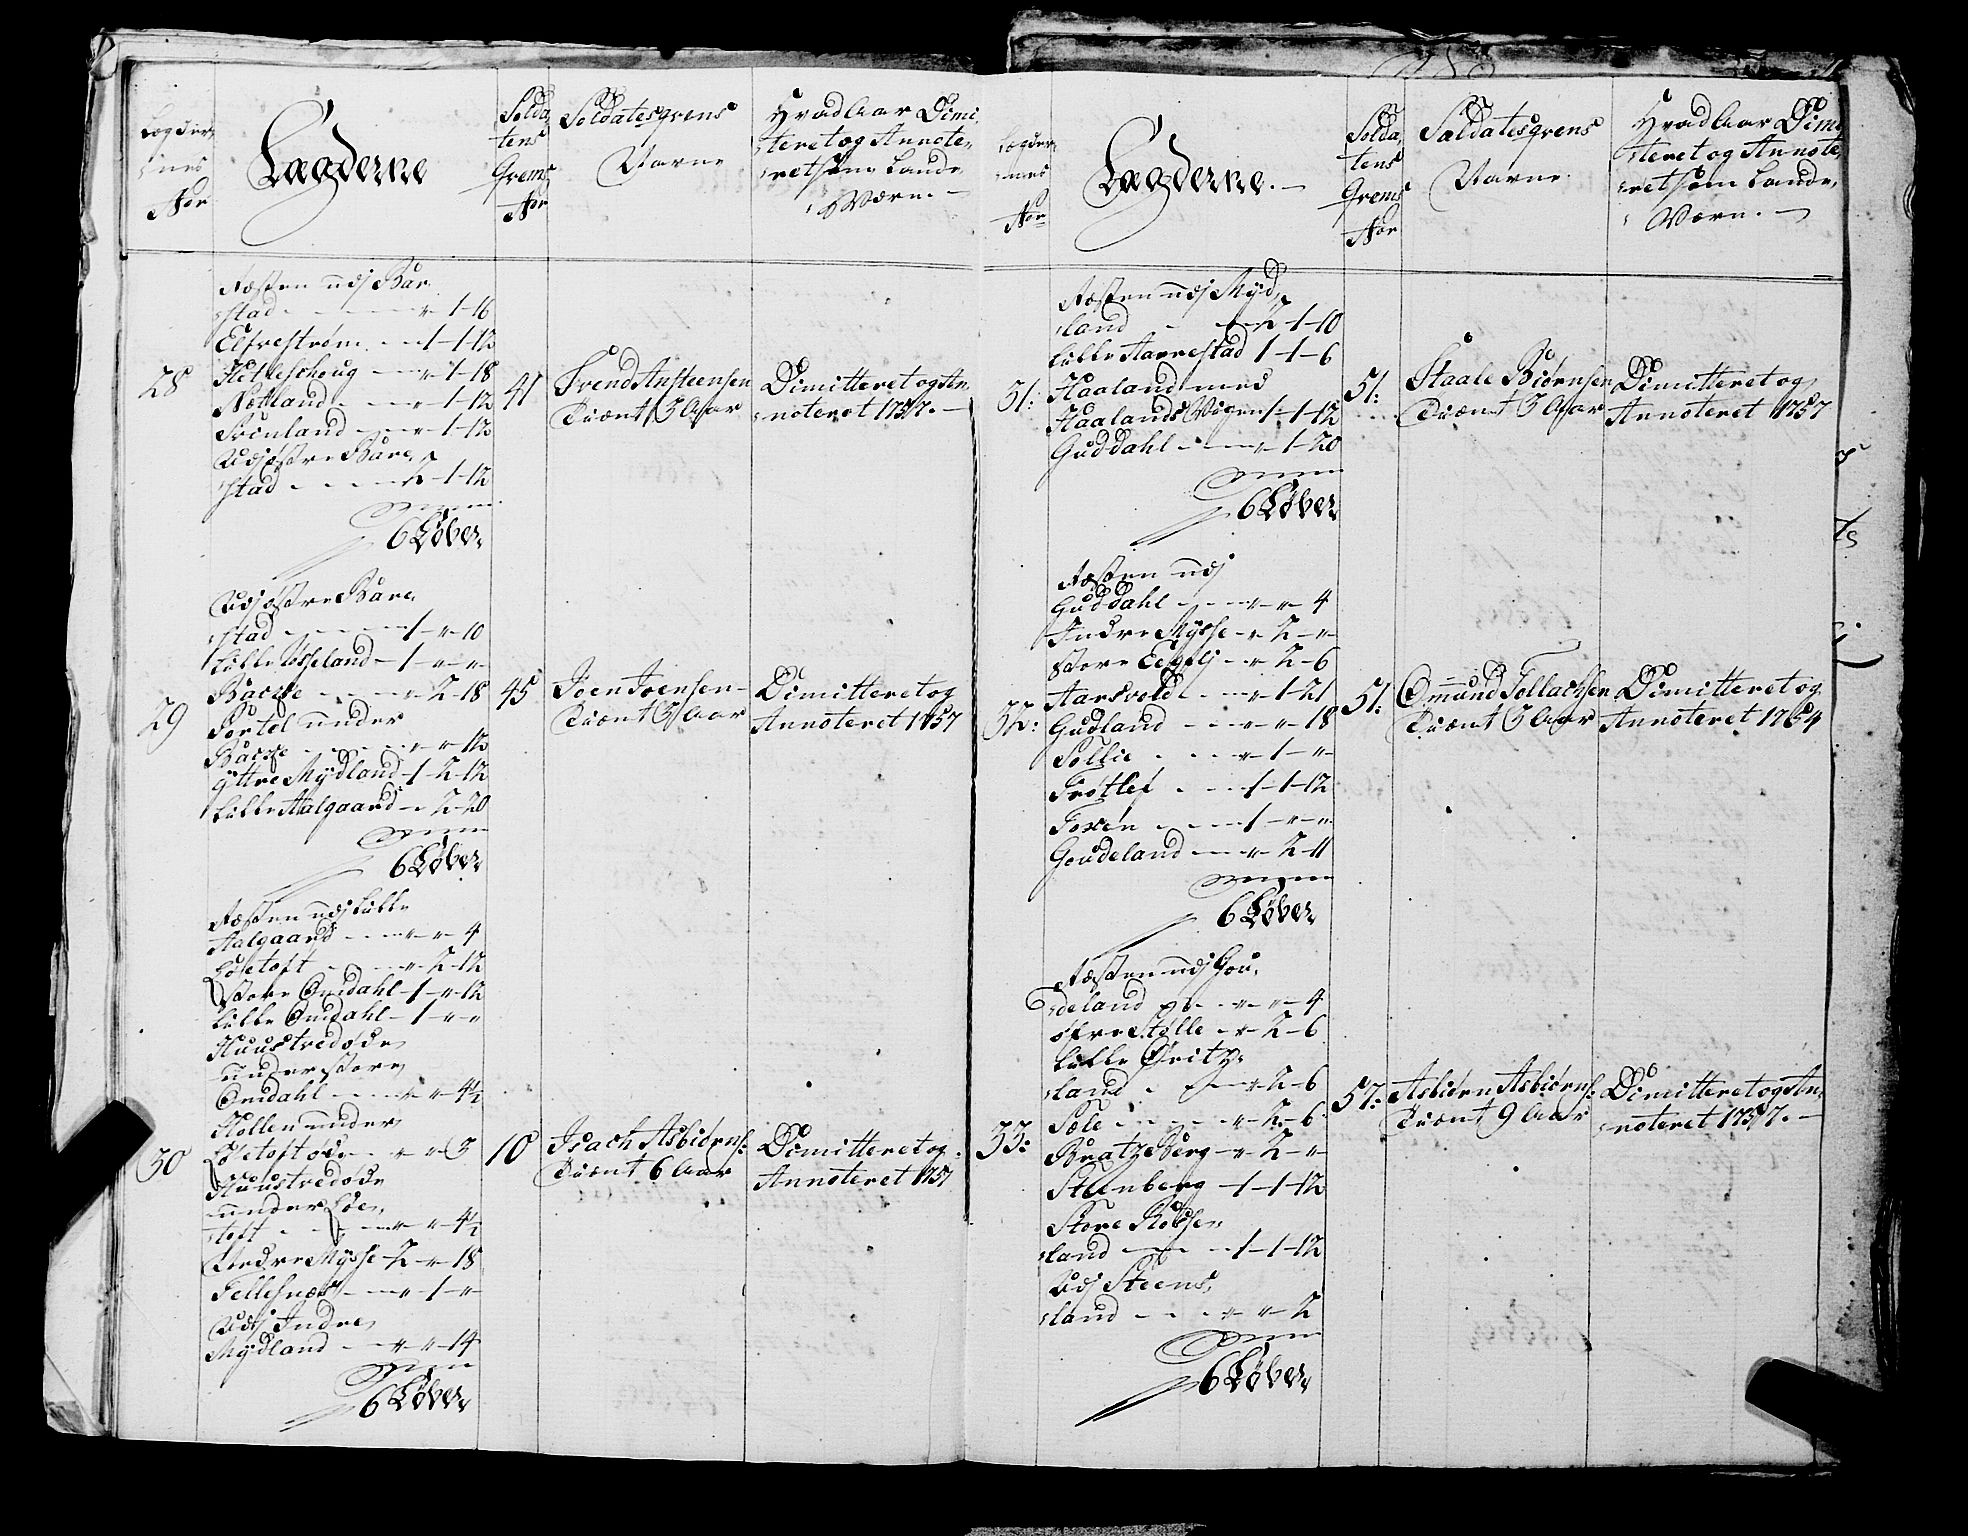 Lægder,
nes
Nor
Lægderne
Solda,
tens
Grems
Nor
Soldatesgrens
Navne
Hvad Aar Dimi,
teret og Annote,
ret som Lands
Værn. —
Næsten udj Bar,
stad - - - - „ 1-16
Elfvestrøm - - 1-1-12
Hetleschoug - - „ 1-18
Netland - - - „ 1-12
Svinland - - - „ 1-12
Udj østre Bare,
stad - - - - „ 1-12
6 Løber
28
41
Svend Ansteensen
Tient 3 Aar
Dimitteret og An,
noteret 1757. —
Udj østre Bare,
stad - - - - 1-„-10
Lille Tøsseland - 1-„-„
Barre - - - „ 2-18
Portel under
Barre - - - „-„-12
Yttre Mydland - 1-2-12
Lille Aalgaard - „ 2-20
6 Løber
29
45
Joen Joensen -
Tient 3 Aar
Dimitteret og
Annoteret 1757
Næsten udj Lille
Aalgaard - - - „-„-4
Løetoft - - - „-2-12
Store Omdahl - 1-„-12
Lille Omdahl - 1-„-„
Huustredøde
under store
Omdahl - - - „-„-4½
Hollen under
Løetoft øde - - „-„-3
Huustredøde
under Løe,
toft - - - „-„-4½
Andre Mysse - 2-„-18
Fellesnæs - - „-1-„
Udj Indre
Mydland - - „-„-14
6 Løber
30
10
Isach Asbiørns:
Tient 6 Aar
Dimitteret og
Annoteret 1757
Lægder,
nes
Nor
Lægderne. —
Solda,
tens
Grems
Nor
Soldatesgrens
Navne
Hvad Aar Dimi,
teret og Annote,
ret som Lands,
Værn. —
Næsten udj Myd,
land - - - 2-1-10
Lille Aarrestad 1-1-6
Haaland med
Haalands Vogen 1-1-12
Guddahl - - - „-1-20
6 Løber
31:
51:
Staale Biørnsen
Tient 3 Aar
Dimitteret og
Annoteret 1757
Næsten udj
Guddahl - - - „-„-4
Indre Mysse - „-2-„
Store Eegelj - - „-2-6
Aarsvold - - - „-1-21
Gudland - - - „-„-18
Sollie - - - „-1-„
Trøtlef - - - 1-1-12
Foxen - - - 1-„-„
Goudeland - - - „-2-11
6 Løber
32:
51:
Omund Tollachsen
Tient 3 Aar
Dimitteret og
Annoteret 1754
Næsten udj Gou,
deland - - „-„-4
Øfre Stølle - „-2-6
Lille Qvitz,
land - - - „-2-6
Sole - - - „-2-6
Bratzberg - „-2-„
Steenberg - 1-1-12
Store Rosse,
land - - - 1-1-12
Udj Steens,
land - - - „-„-2
6 Løber
33:
57:
Asbiørn Asbiørns:
Tient 9 Aar
Dimitteret og An,
noteret 1757. —